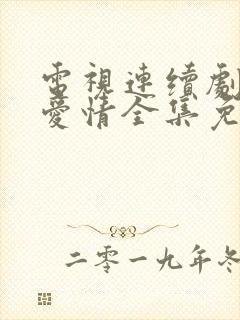 電視連續劇
愛情全集免
二零一九年冬